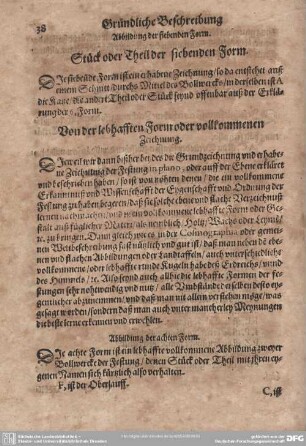 38
Gründliche Beschreibung
Abbildung der siebenden Form.
Stück oder Theil der siebenden Form.
Die siebende Form ist ein erhabene Zeichnung/ so da entstehet auß
einem Schnitt durchs Mittel des Bollwercks/ in derselben ist A
die Kane/ die andern Theil oder Stück seynd offenbar auß der Erklä-
rung der 6. Form.
Von der lebhafften Form oder vollkommenen
Zeichnung.
wir dann bißher bey des die Grundzeichnung und erhabe-
ne Zeichnung der Festung in plano, oder auff der Ebene erkläret
und beschrieben haben/ so ist von nöthen denen/ die ein vollkommene
Erkantnuß und Wissenschafft der Eygenschafft und Ordnung der
Festung zu haben begeren/ daß sie solche ebene und flache Verzeichnuß
lernen nachmachen/ und in ein vollkommene lebhaffte Form oder Ge-
stalt auß füglicher Materi/ als nemblich/ Holtz/ Wachs oder Leym/
etc. zu bringen. Dann gleich wie es in der Cosmographia oder gemei-
nen Weltbeschreibung fast nützlich und gut ist/ daß man neben den ebe-
nen und flachen Abbildungen oder Landtaffeln/ auch unterschiedliche
vollkommene/ oder lebhaffte runde Kugeln habe deß Erdreichs/ unnd
des Himmels/ etc. Also seynd auch allhie die lebhaffte Formen der Fe-
stungen sehr nothwendig und nutz/ alle Umbstände derselben desto ey-
gentlicher abzunemmen/ und daß man nit allein verstehen möge/ was
gesagt worden/ sondern daß man auch unter mancherley Meynungen
die beste lerne erkennen und erwehlen.
Abbildung der achten Form.
Die achte Form ist ein lebhaffte vollkommene Abbildung zweyer
Bollwercke der Festung/ deren Stück oder Theil mit ihren ey-
genen Namen sich kürtzlich also verhalten.
F, ist der Oberlauff.
C, ist